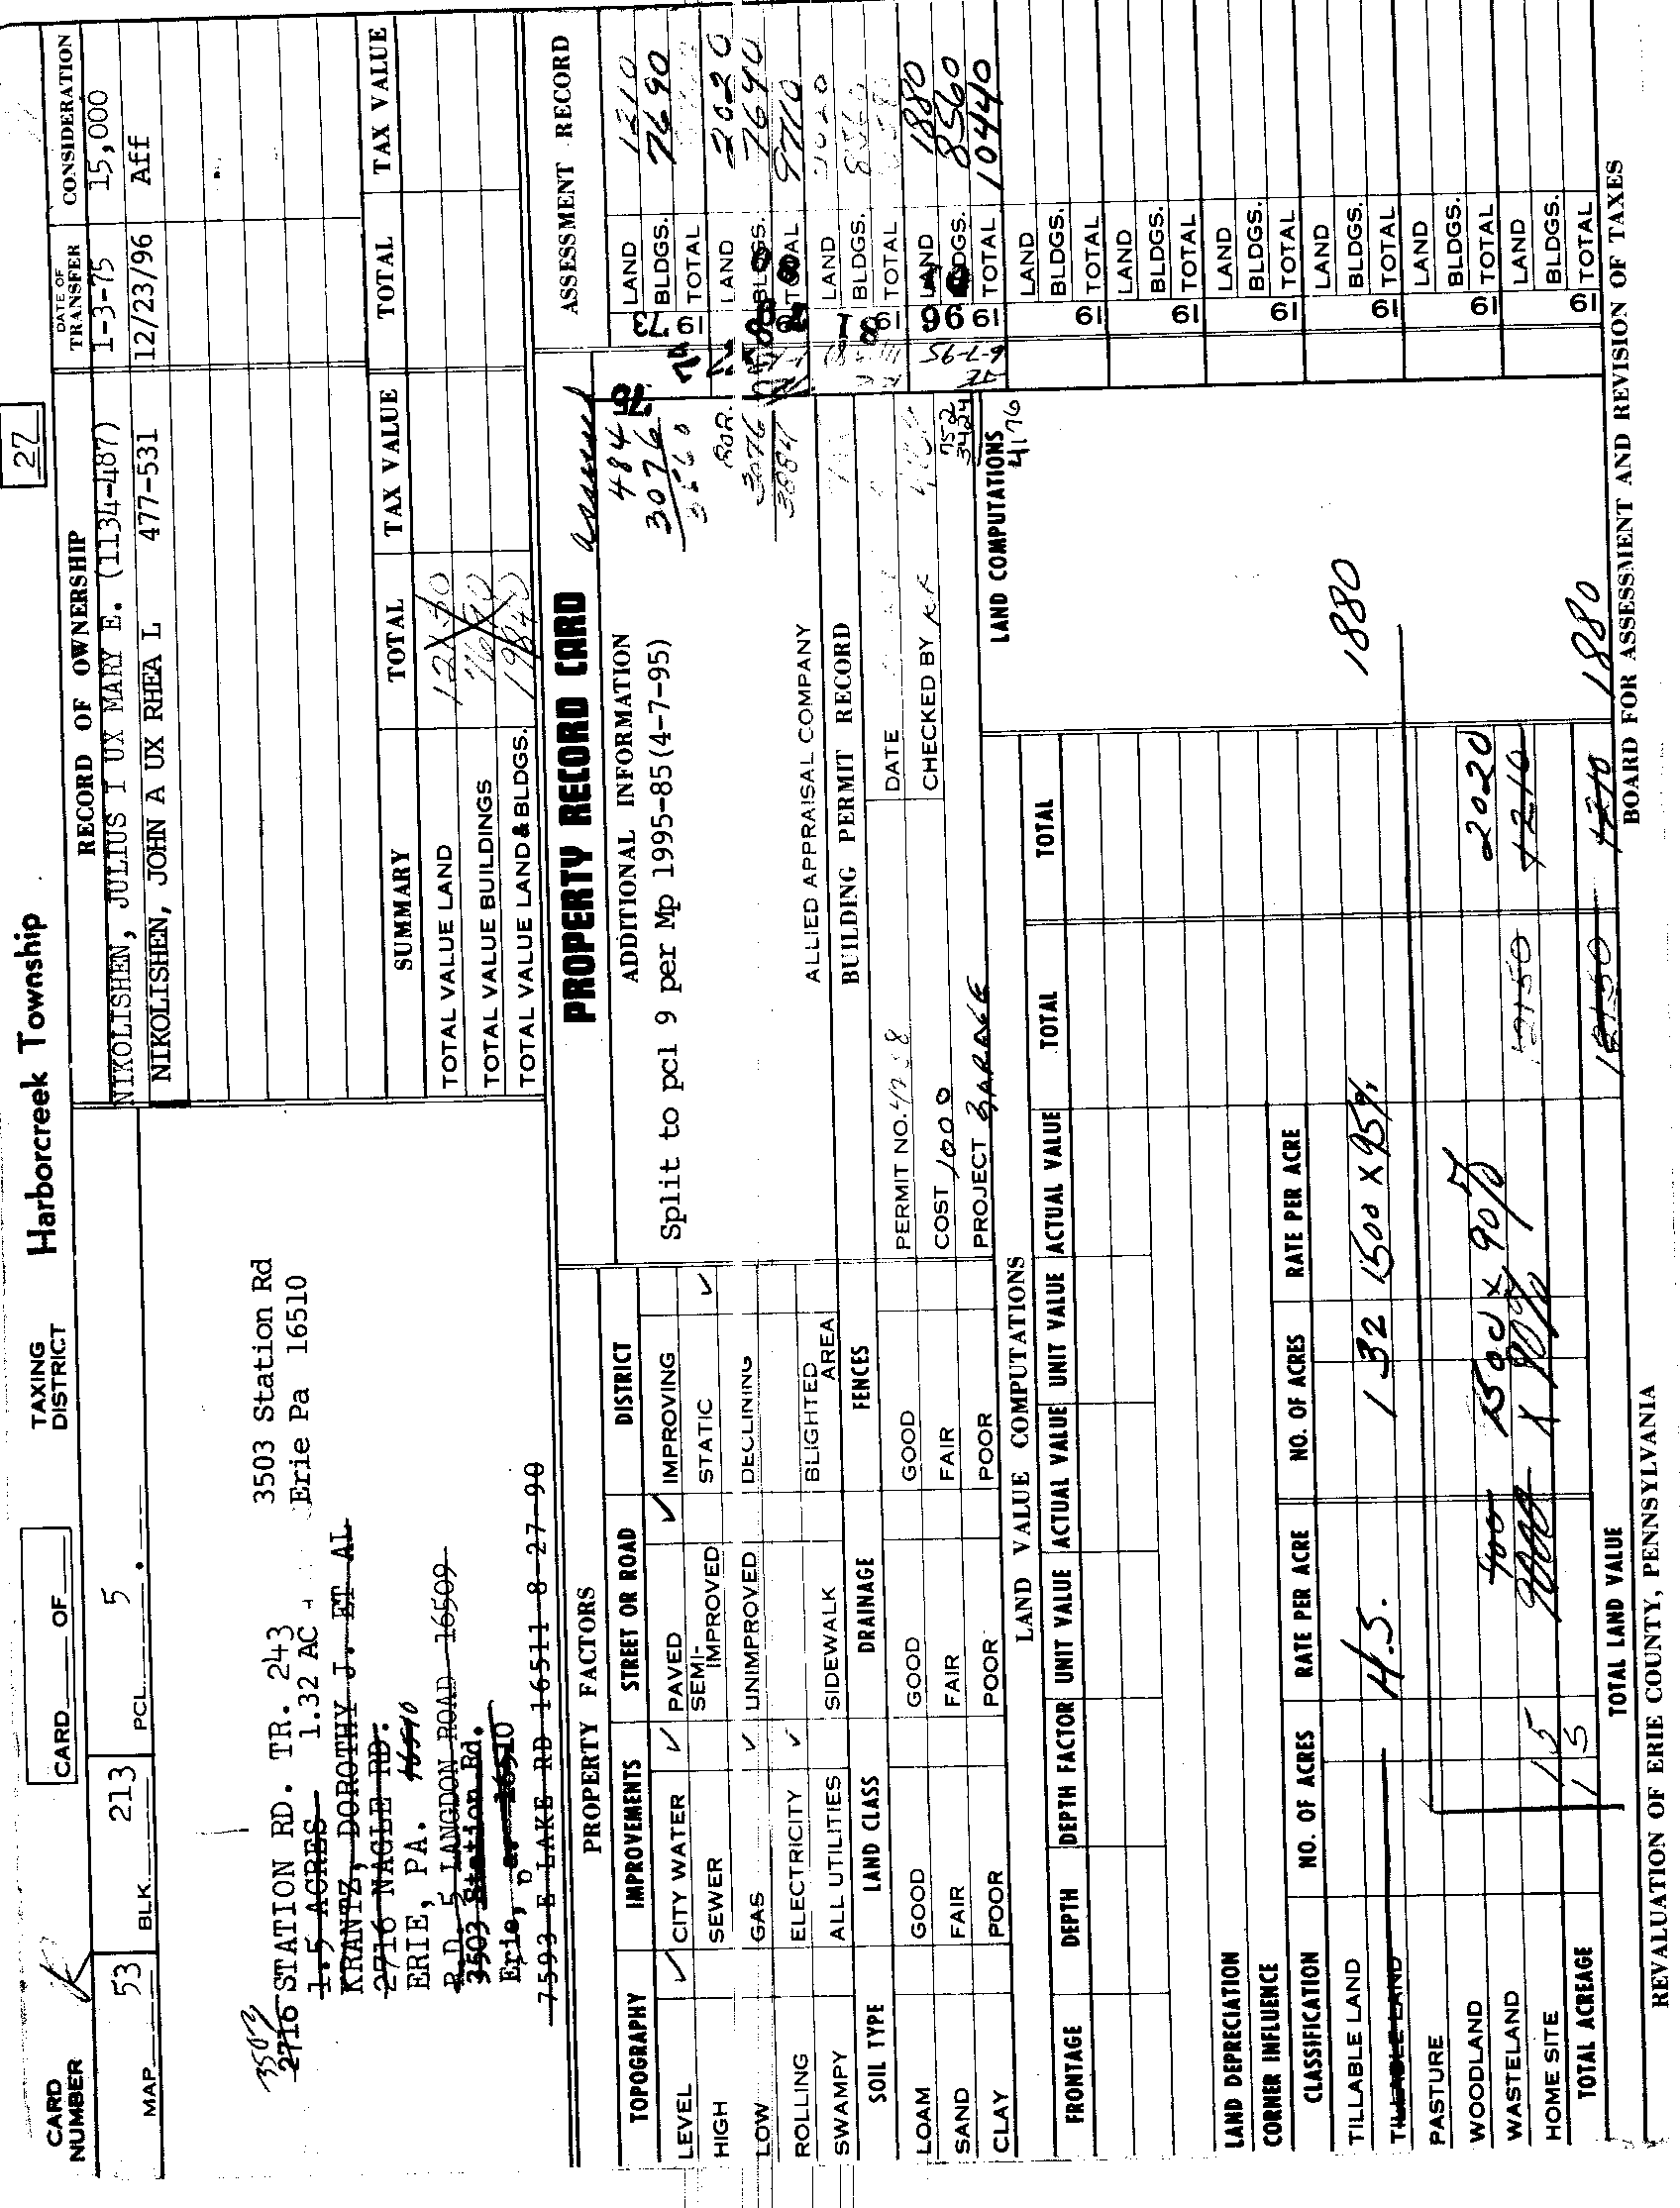 CARD NUMBER
CARD OF
TAXING DISTRICT Harborcreek Township
27
MAP 53 BLK. 213 PCL. 5
RECORD OF OWNERSHIP
DATE OF TRANSFER
CONSIDERATION
NIKOLISHEN, JULIUS I UX MARY E. (1134-487) 1-3-75 15,000
NIKOLISHEN, JOHN A UX RHEA L 477-531 12/23/96 Aff
3503
2716 STATION RD. TR. 243
1.5 ACRES 1.32 AC
KRANTZ, DOROTHY J. ET AL
2716 NAGLE RD.
ERIE, PA. 16510
R.D. 5 LANGDON ROAD 16509
3503 Station Rd.
Erie, 16510
7593 E LAKE RD 16511 8-27-90
3503 Station Rd
Erie Pa 16510
SUMMARY TOTAL TAX VALUE TOTAL TAX VALUE
TOTAL VALUE LAND
TOTAL VALUE BUILDINGS
TOTAL VALUE LAND & BLDGS.
PROPERTY RECORD CARD
PROPERTY FACTORS
TOPOGRAPHY IMPROVEMENTS STREET OR ROAD DISTRICT
LEVEL ✓ CITY WATER ✓ PAVED ✓ IMPROVING
HIGH SEWER SEMI-IMPROVED STATIC ✓
LOW GAS ✓ UNIMPROVED DECLINING
ROLLING ELECTRICITY ✓
SWAMPY ALL UTILITIES SIDEWALK BLIGHTED AREA
SOIL TYPE LAND CLASS DRAINAGE FENCES
LOAM GOOD GOOD GOOD
SAND FAIR FAIR FAIR
CLAY POOR POOR POOR
ADDITIONAL INFORMATION
Split to pcl 9 per Mp 1995-85(4-7-95)
assessed
'75
484
3076
3560
ROR.
3076
3884
ALLIED APPRAISAL COMPANY
BUILDING PERMIT RECORD
PERMIT NO. DATE
COST 1000 CHECKED BY
PROJECT GARAGE
752
3424
4176
ASSESSMENT RECORD
1973 LAND 1210
BLDGS. 7690
TOTAL
LAND 2020
BLDGS. 7690
TOTAL 9710
1981 LAND 2020
BLDGS.
TOTAL
6-7-95
1996 LAND 1880
BLDGS. 8560
TOTAL 10440
19 LAND
BLDGS.
TOTAL
19 LAND
BLDGS.
TOTAL
19 LAND
BLDGS.
TOTAL
19 LAND
BLDGS.
TOTAL
19 LAND
BLDGS.
TOTAL
19 LAND
BLDGS.
TOTAL
LAND VALUE COMPUTATIONS
LAND COMPUTATIONS
FRONTAGE DEPTH DEPTH FACTOR UNIT VALUE ACTUAL VALUE UNIT VALUE ACTUAL VALUE TOTAL TOTAL
LAND DEPRECIATION
CORNER INFLUENCE
CLASSIFICATION NO. OF ACRES RATE PER ACRE NO. OF ACRES RATE PER ACRE
TILLABLE LAND H.S. 1 32 1500 X 95% 1880
TILLABLE LAND
PASTURE
WOODLAND 400 1500 X 90% 2020
WASTELAND X 80% 12150 1210
HOME SITE 1 5
TOTAL ACREAGE 1 5
TOTAL LAND VALUE 12150 1210 1880
REVALUATION OF ERIE COUNTY, PENNSYLVANIA
BOARD FOR ASSESSMENT AND REVISION OF TAXES